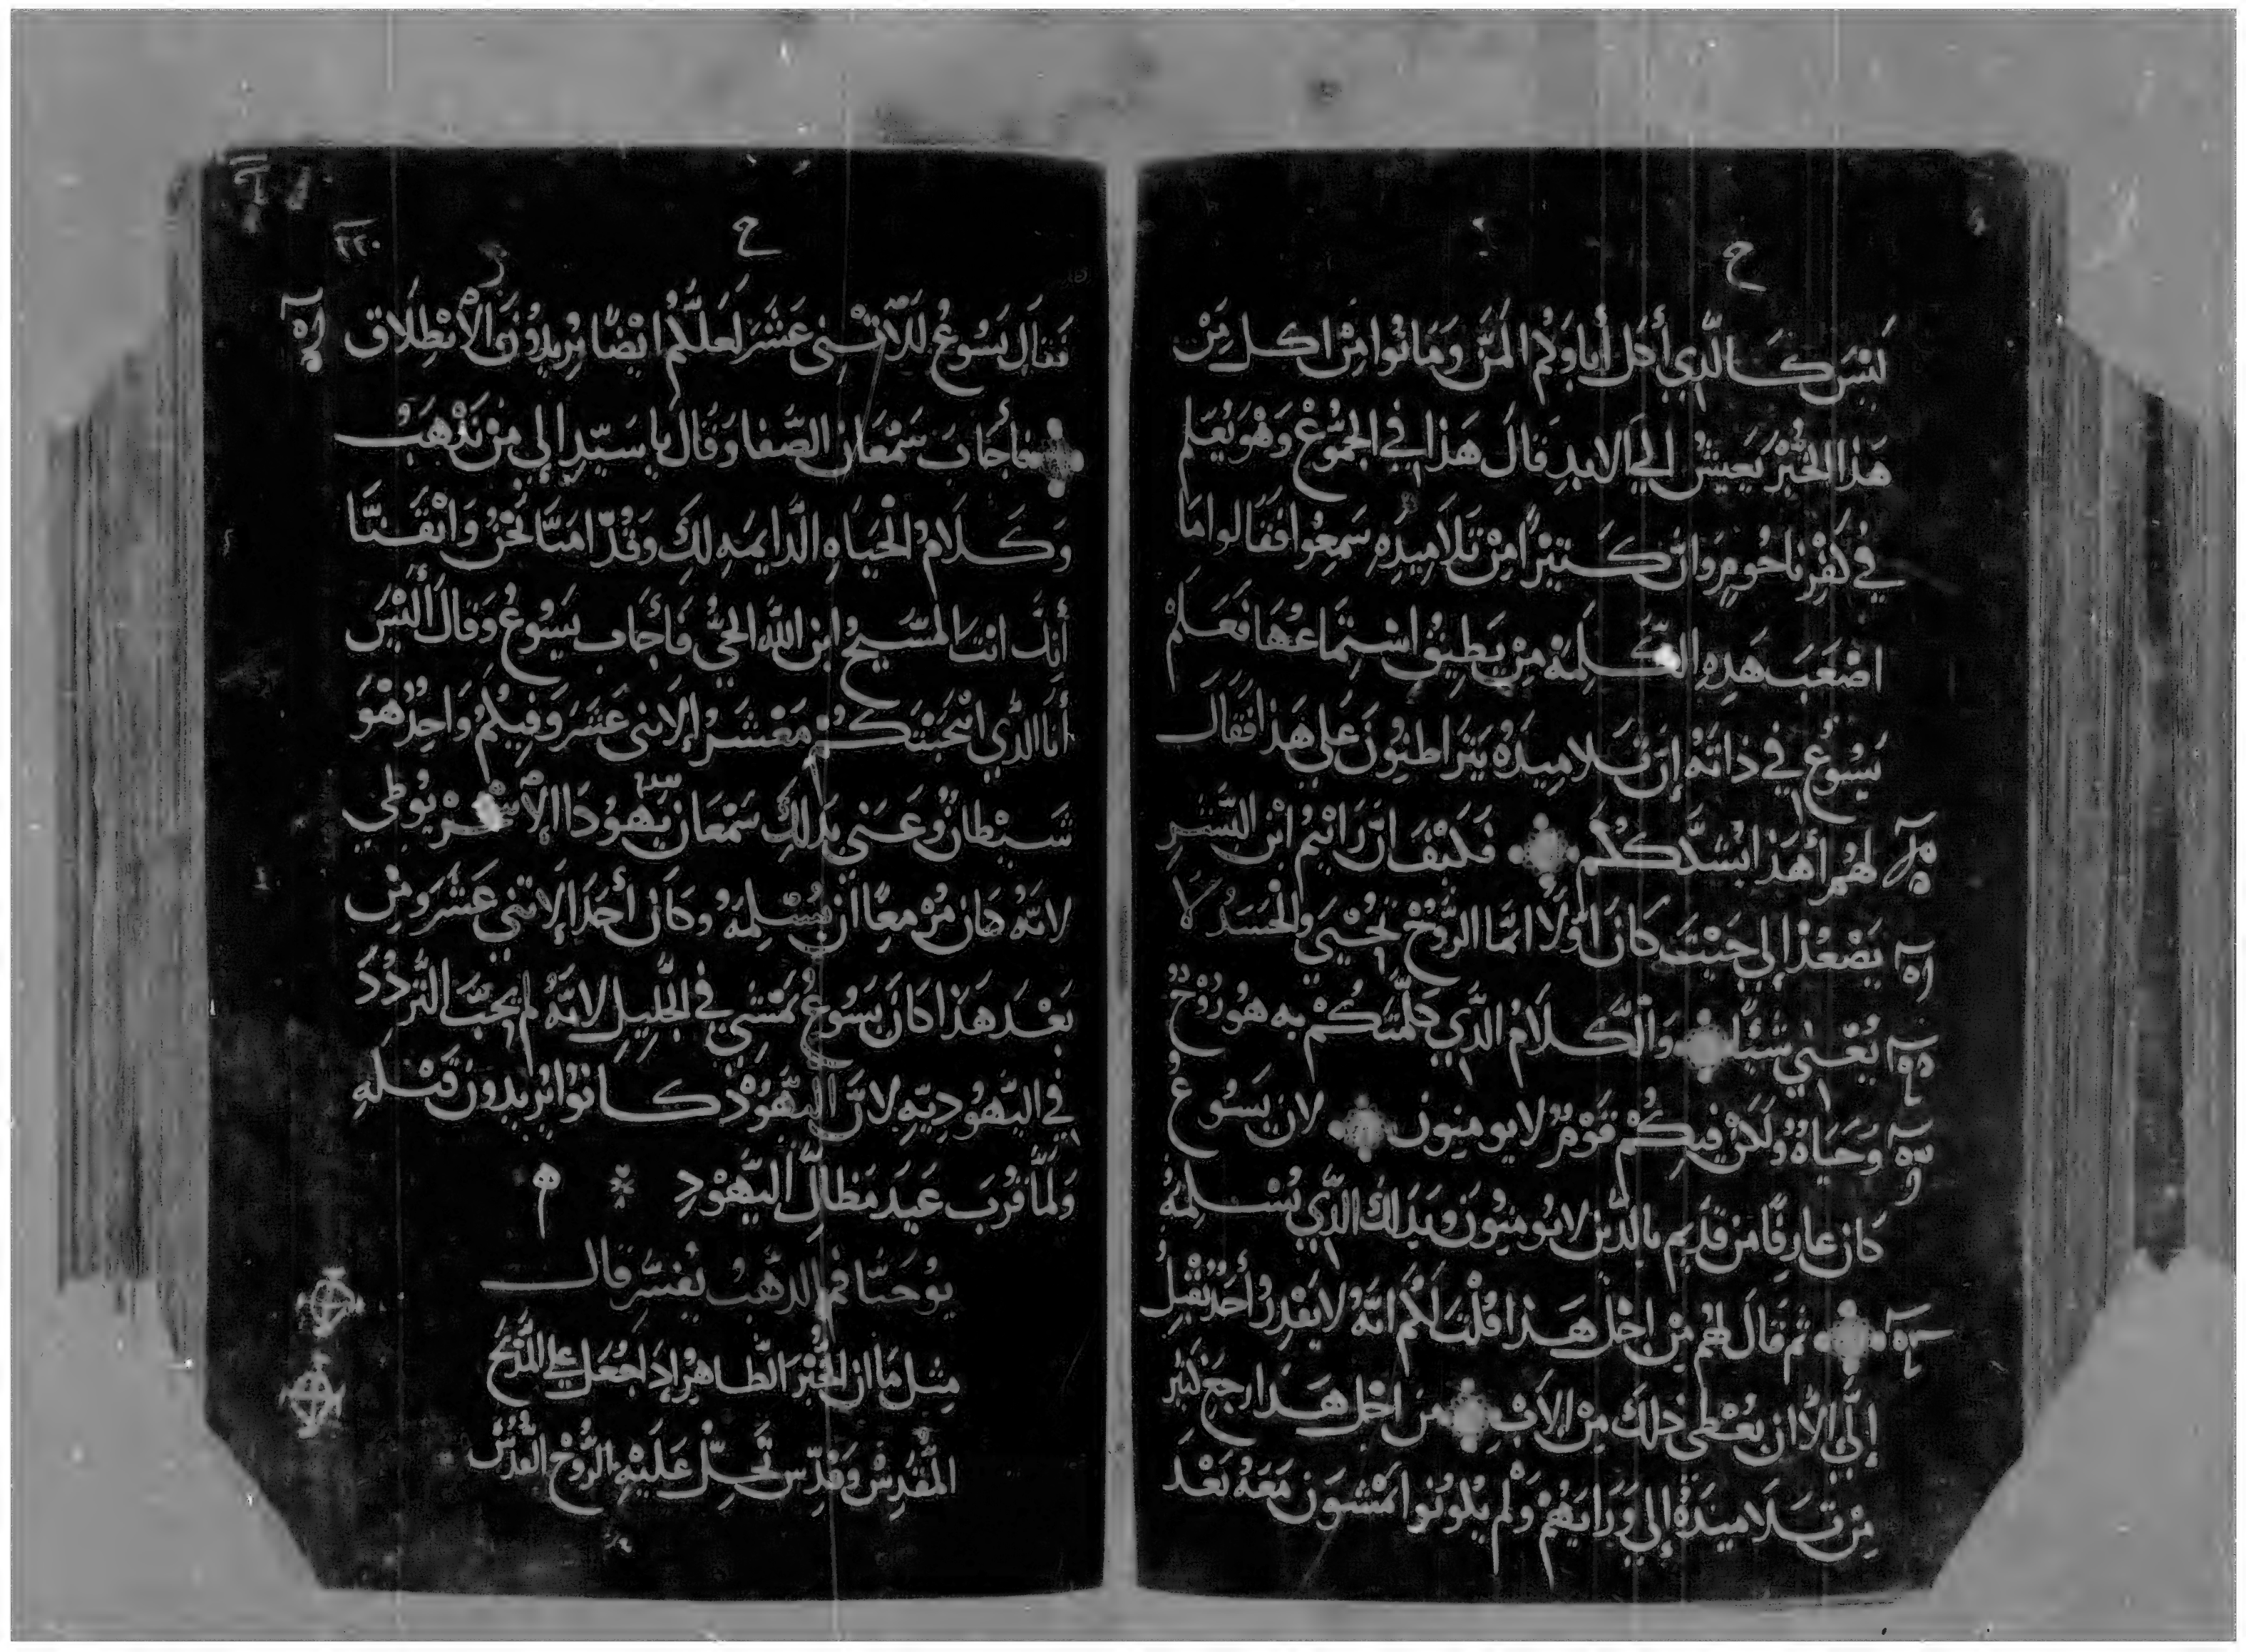 ح
لَيْسَ كَالَّذِي أَكَلَ أَباوَكُم المَنَّ وَمَاتُوا مِنْ اكل مِنْ
هَذا الخُبْزَ يَعِيشُ الِيَ الابدِ قالَ هَذا فِي الجُمُوْعْ وَهْوَ يُعَلم
فِي كَفْرِناحُومِ وَانَّ كَثيْرًا مِنْ تَلاَمِيدِهِ سَمِعُوا فَقَالوا مَا
اصْعَبَ هَدِهِ الكَلِمَهْ مِنْ يَطِيقُ اسْتِمَاعهَا فَعَلِمْ
يَسُوعُ فِي ذاتهُ إنَّ تَلاميدَهُ يَتَراطنُونَ عَلي هَذا فَقَالَ
لهُم أهَذا يُشَكِّكُكُم فَكَيْفَ انْ رَايْتم ابْن البَشَرِ
يَصْعُدْ إلي حَيْثَ كَانَ اوَّلاً انمَا الرُّوحْ تُحْيي والجَسَدْ لا
يُغْني شَيْئًا وَالكَلاَمُ الَّذِي كَلَّمْتكُمْ بِهِ هوُ رُوْحُ
وَحَيَاهُ وَلَكنْ فِيكُمْ قَوْمُ لا يومنون لان يَسُوعُ
كانَ عارِفًا مِنْ قَدِيم بِالَّدِين لا يُومنُونَ وَبِدَلكَ الَّدِي يُسْلِمُهُ
ثم قَالَ لهُم مِنْ اجْل هَذا قُلْتَ لَكُم انَهُ لا يَقْدِرُ أَحَدُ يُقْبِلُ
إلَيَّ إلاَّ ان يُعْطَي ذلكَ مِنَ الاَبْ مِنَ اجْل هَذا رجِعَ كَثير
مِنْ تَلاَمِيدَهُ إلي وَرَايَهُمْ وَلَم يكُونُوا يمْشوَن مَعَهُ بَعْد
ح
فَقَالَ يَسُوعُ لِلاثْني عَشَرَ لَعَلَّكُم ايْضًا تُرِيدُونَ الاِنْطِلاَق
فأَجَابَ سَمْعَان الصَّفا وَقَال يا سَيّدِ إلي مِنْ نَدْهَبْ
وَكَلاَمُ الحَيَاهِ الدَّايمَهِ لكَ وَقَدْ امَنَّا نَحْنُ وَايْقَنَّا
أنكَ انتَ المسَيحُ ابْن الله الحَيُّ فَأَجَاب يَسُوعُ وَقالَ ألَيْسَ
أنَا الَّذِي انْتَخَبْتكُمْ مَعْشَرَ الاِثنى عَشَرَ وَفِيكُمْ وَاحِدُ هْوَ
شَيْطانُ وَعَني بدَلكَ سَمْعَان يَهُودَا الاِسْخرْيوُطي
لانَّهُ كَان مُزْمعًا ان يُسْلِمَهُ وَكَان أحَدَ الاِثنَي عَشَرَ وَمِنْ
بَعْد هَذا كَانَ يَسُوعُ يمْشي فِي الجَليل لانَّهُ لم يحِبَّ التَّرَدُدَ
فِي اليَهُودِيَّهِ لانَّ اليَهُوْدْ كَانوُا يُرِيدُونَ قَتْلَهِ
وَلَمَّا قَرُبَ عَيَد مَظالِّ اليَّهُوْدِ
يوُحَنَّا فم الدَّهَبْ يُفسّرِ قال
مِثل مَا ان الخُبْز الطَاهرُ إدَا جُعَل عَلي المَّدْبَحْ
المُقَدِسْ وَقدِّس تَحِلَّ عَلَيْهِ الرُّوْح القُدُسْ